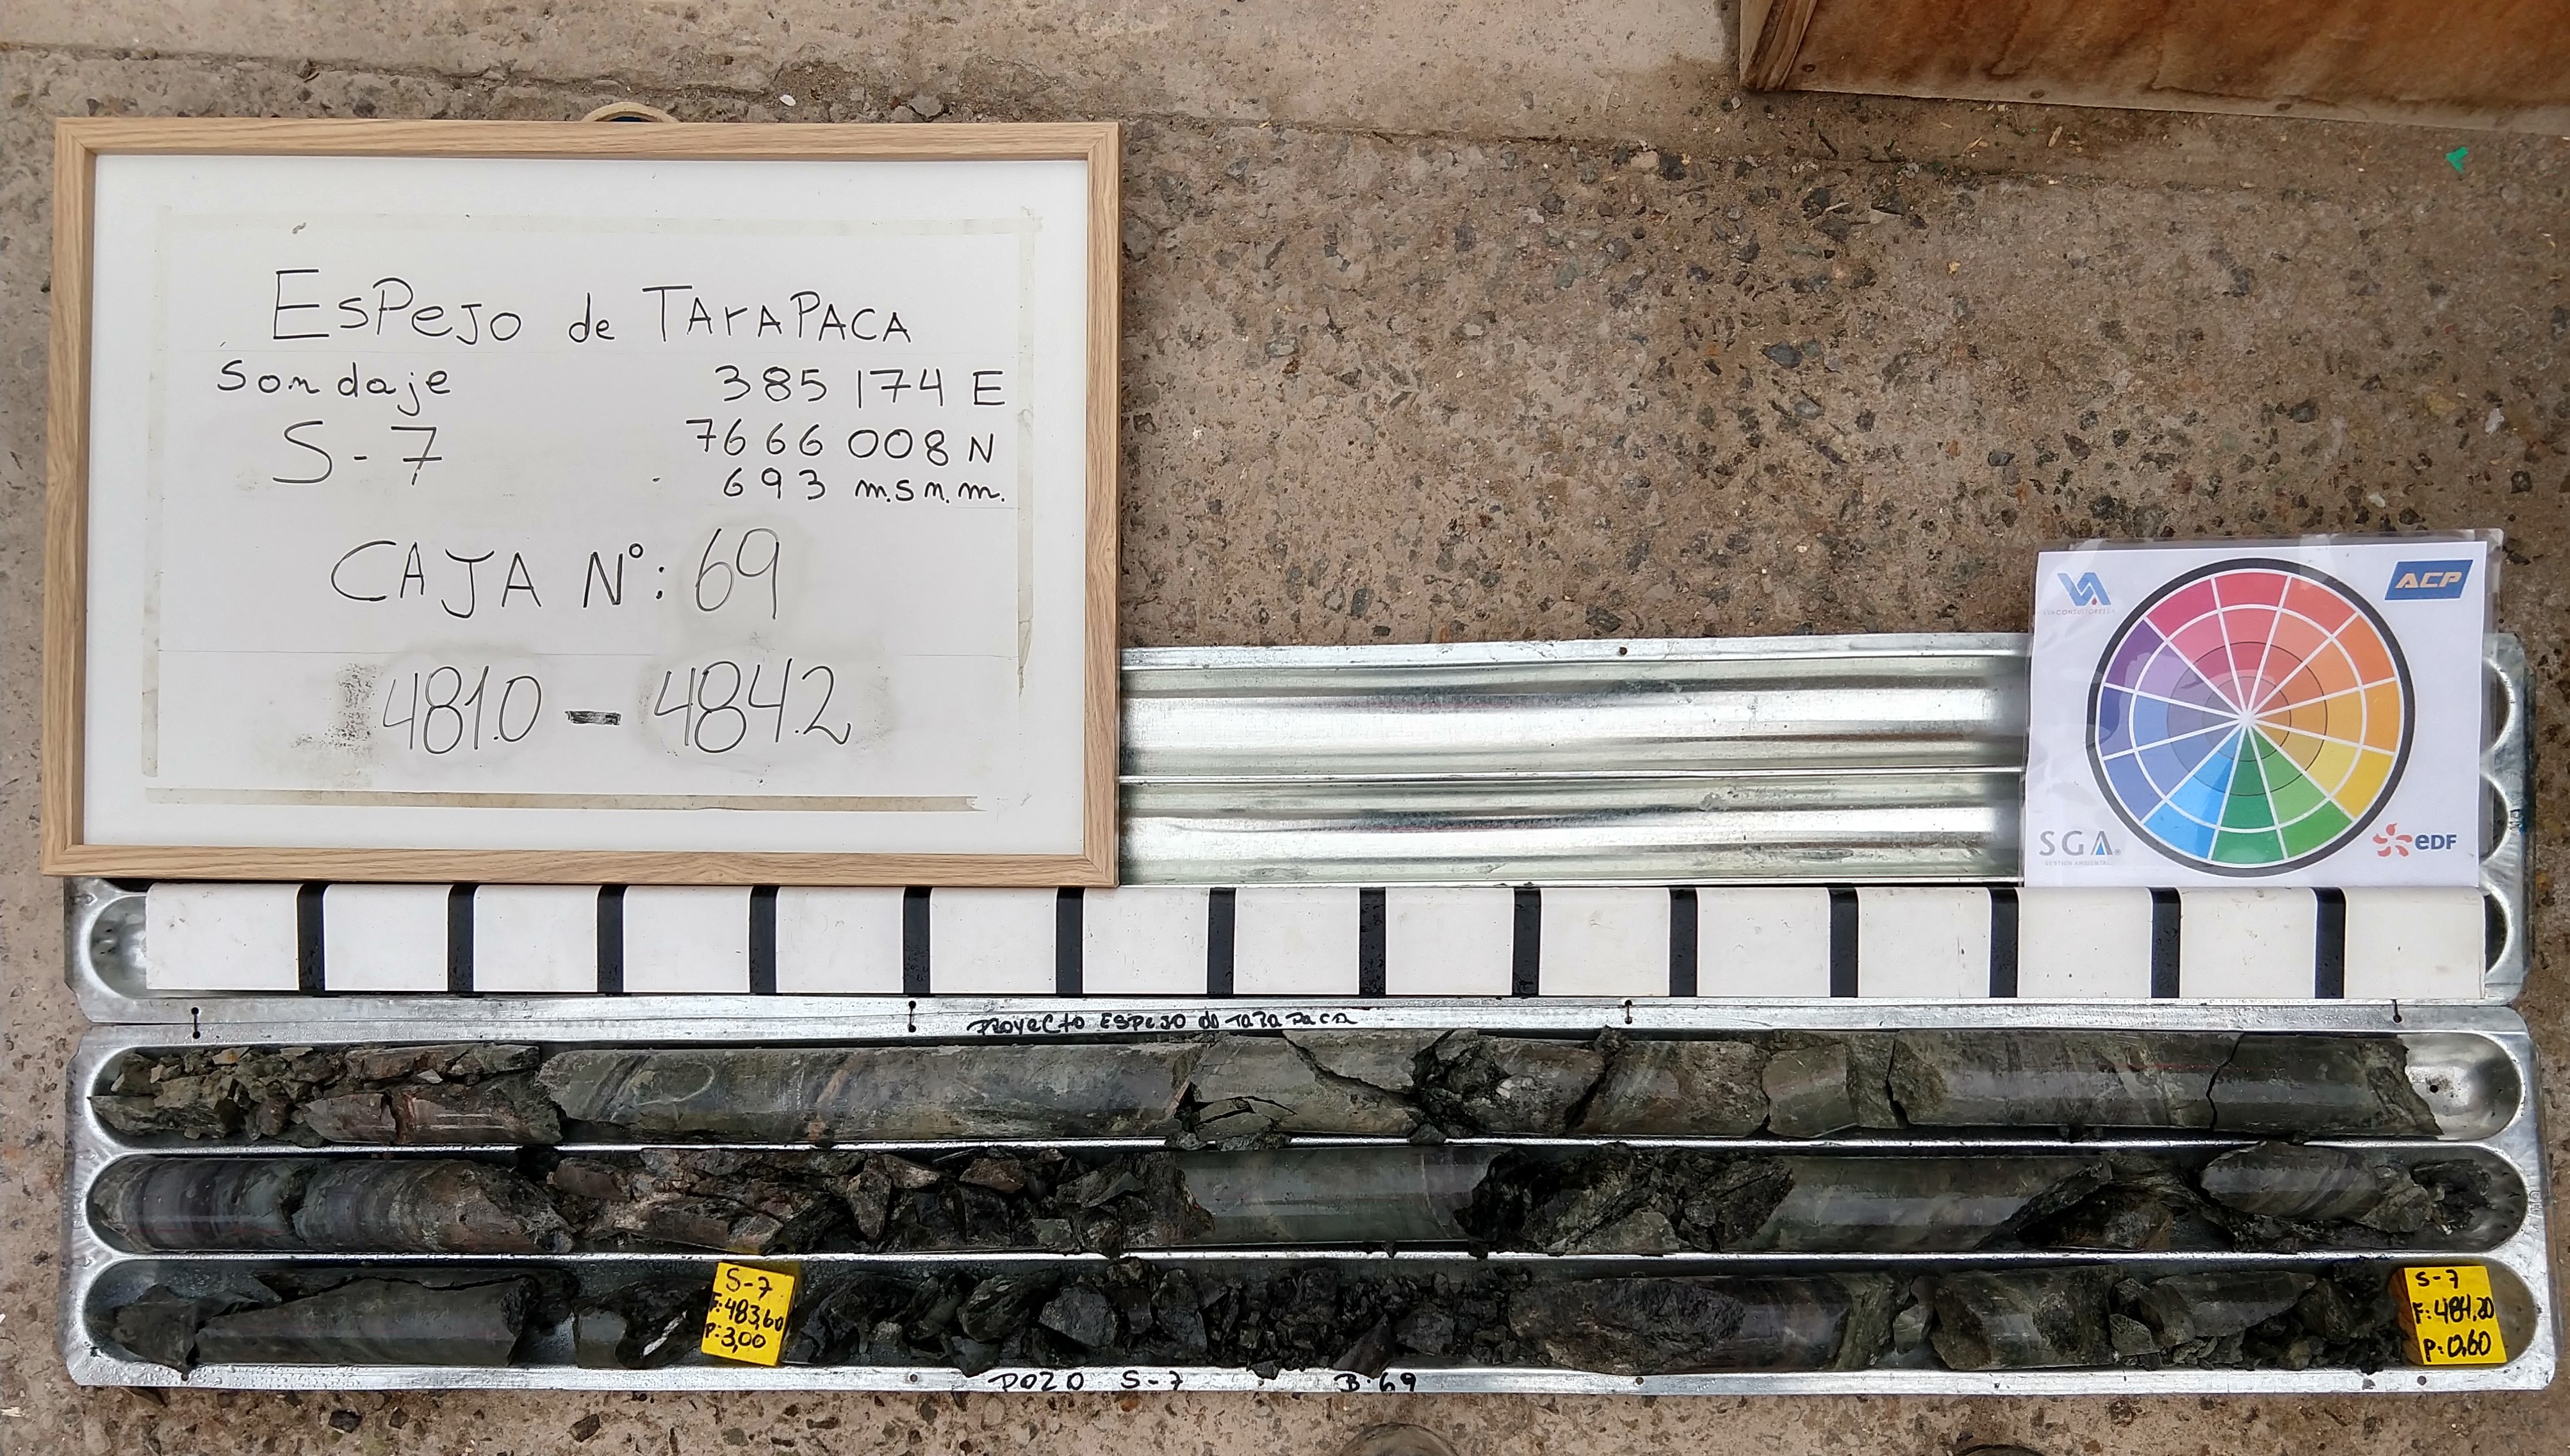 ESPEJO de TARAPACA
Sondaje
385 174 E
S-7
7666 008 N
693 m.s.n.m.
CAJA N°: 69
481.0 - 484.2
ACP
SGA
eDF
PROYECTO ESPEJO de TARAPACA
S-7
F:483,60
P:3,00
S-7
F:484,20
P:0,60
POZO S-7 B.69